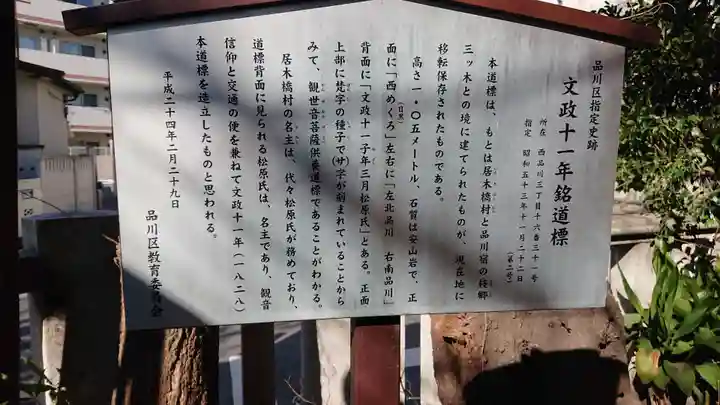 品川区指定史跡
文政十一年銘道標
所在 西品川三丁目十六番三十一号
指定 昭和五十三年十一月二十二日
(第二号)
本道標は、もとは居木橋村と品川宿の枝郷
三ッ木との境に建てられたものが、現在地に
移転保存されたものである。
高さ一・〇五メートル、石質は安山岩で、正
面に「西めくろ」左右に「左北品川 右南品川」
(目黒)
背面に「文政十一子年三月松原氏」とある。正面
上部に梵字の種子で(サ)字が刻まれていることから
みて、観世音菩薩供養道標であることがわかる。
居木橋村の名主は、代々松原氏が務めており、
道標背面に見られる松原氏は、名主であり、観音
信仰と交通の便を兼ねて文政十一年(一八二八)
本道標を造立したものと思われる。
平成二十四年二月二十九日
品川区教育委員会